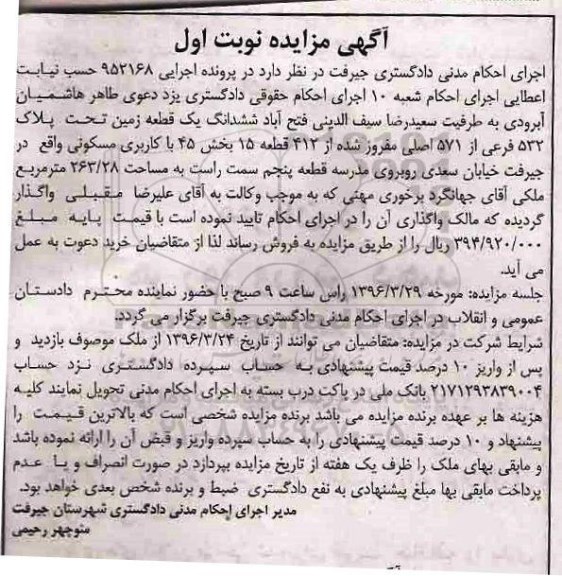 آگهی مزایده نوبت اول
اجرای احکام مدنی دادگستری جیرفت در نظر دارد در پرونده اجرایی ۹۵۳۱۶۸ حسب نیابت
اعطایی اجرای احکام شعبه ۱۰ اجرای احکام حقوقی دادگستری یزد دعوی طاهر هاشمیان
آبرودی به طرفیت سعیدرضا سیف الدینی فتح آباد ششدانگ یک قطعه زمین تحت پلاک
۵۳۲ فرعی از ۵۷۱ اصلی مفروز شده از ۴۱۲ قطعه ۱۵ بخش ۴۵ با کاربری مسکونی واقع در
جیرفت خیابان سعدی روبروی مدرسه قطعه پنجم سمت راست به مساحت ۲۶۳/۲۸ مترمربع
ملکی آقای جهانگرد برخوری مهنی که به موجب وکالت به آقای علیرضا مقبلی واگذار
گردیده که مالک واگذاری آن را در اجرای احکام تایید نموده است با قیمت پایه مبلغ
۳۹۴/۹۲۰/۰۰۰ ریال را از طریق مزایده به فروش رساند لذا از متقاضیان خرید دعوت به عمل
می آید.
جلسه مزایده: مورخه ۱۳۹۶/۳/۲۹ راس ساعت ۹ صبح با حضور نماینده محترم دادستان
عمومی و انقلاب در اجرای احکام مدنی دادگستری جیرفت برگزار می گردد.
شرایط شرکت در مزایده: متقاضیان می توانند از تاریخ ۱۳۹۶/۳/۲۴ از ملک موصوف بازدید و
پس از واریز ۱۰ درصد قیمت پیشنهادی به حساب سپرده دادگستری نزد حساب
۲۱۷۱۲۹۳۸۳۹۰۰۴ بانک ملی در پاکت درب بسته به اجرای احکام مدنی تحویل نمایند کلیه
هزینه ها بر عهده برنده مزایده می باشد برنده مزایده شخصی است که بالاترین قیمت را
پیشنهاد و ۱۰ درصد قیمت پیشنهادی را به حساب سپرده واریز و قبض آن را ارائه نموده باشد
و مابقی بهای ملک را ظرف یک هفته از تاریخ مزایده بپردازد در صورت انصراف و یا عدم
پرداخت مابقی بها مبلغ پیشنهادی به نفع دادگستری ضبط و برنده شخص بعدی خواهد بود.
مدیر اجرای احکام مدنی دادگستری شهرستان جیرفت
منوچهر رحیمی